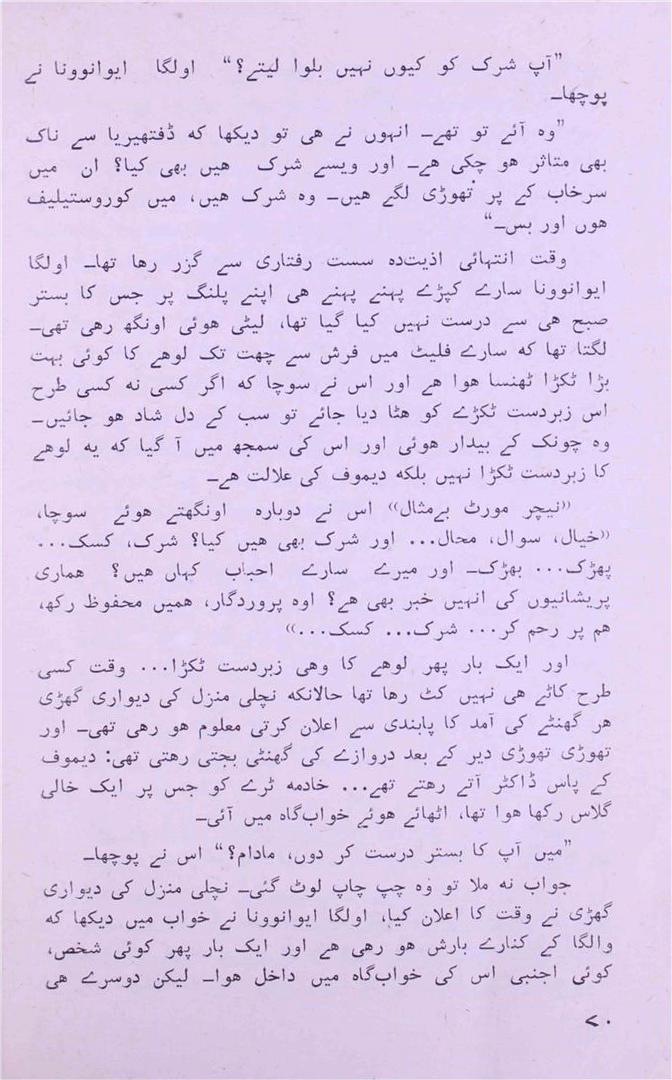 ”آپ شرک کو کیوں نہیں بلوا لیتے؟“ اولگا ایوانوونا نے
پوچھا۔
”وہ آئے تو تھے۔ انہوں نے ہی تو دیکھا کہ ڈفتھیریا سے ناک
بھی متاثر ہو چکی ہے۔ اور ویسے شرک ہیں بھی کیا؟ ان میں
سرخاب کے پر تھوڑی لگے ہیں۔ وہ شرک ہیں، میں کوروستیلیف
ہوں اور بس۔“
وقت انتہائی اذیت‌دہ سست رفتاری سے گزر رہا تھا۔ اولگا
ایوانوونا سارے کپڑے پہنے پہنے ہی اپنے پلنگ پر جس کا بستر
صبح ہی سے درست نہیں کیا گیا تھا، لیٹی ہوئی اونگھ رہی تھی۔
لگتا تھا کہ سارے فلیٹ میں فرش سے چھت تک لوہے کا کوئی بہت
بڑا ٹکڑا ٹھنسا ہوا ہے اور اس نے سوچا کہ اگر کسی نہ کسی طرح
اس زبردست ٹکڑے کو ہٹا دیا جائے تو سب کے دل شاد ہو جائیں۔
وہ چونک کے بیدار ہوئی اور اس کی سمجھ میں آ گیا کہ یہ لوہے
کا زبردست ٹکڑا نہیں بلکہ دیموف کی علالت ہے۔
«نیچر مورٹ بے‌مثال» اس نے دوبارہ اونگھتے ہوئے سوچا،
«خیال، سوال، محال... اور شرک بھی ہیں کیا؟ شرک، کسک...
پھڑک... بھڑک۔ اور میرے سارے احباب کہاں ہیں؟ ہماری
پریشانیوں کی انہیں خبر بھی ہے؟ اوہ پروردگار، ہمیں محفوظ رکھ،
ہم پر رحم کر... شرک... کسک...»
اور ایک بار پھر لوہے کا وہی زبردست ٹکڑا... وقت کسی
طرح کاٹے ہی نہیں کٹ رہا تھا حالانکہ نچلی منزل کی دیواری گھڑی
ہر گھنٹے کی آمد کا پابندی سے اعلان کرتی معلوم ہو رہی تھی۔ اور
تھوڑی تھوڑی دیر کے بعد دروازے کی گھنٹی بجتی رہتی تھی: دیموف
کے پاس ڈاکٹر آتے رہتے تھے... خادمہ ٹرے کو جس پر ایک خالی
گلاس رکھا ہوا تھا، اٹھائے ہوئے خواب‌گاہ میں آئی۔
”میں آپ کا بستر درست کر دوں، مادام؟“ اس نے پوچھا۔
جواب نہ ملا تو وہ چپ چاپ لوٹ گئی۔ نچلی منزل کی دیواری
گھڑی نے وقت کا اعلان کیا، اولگا ایوانوونا نے خواب میں دیکھا کہ
والگا کے کنارے بارش ہو رہی ہے اور ایک بار پھر کوئی شخص،
کوئی اجنبی اس کی خواب‌گاہ میں داخل ہوا۔ لیکن دوسرے ہی
۷۰